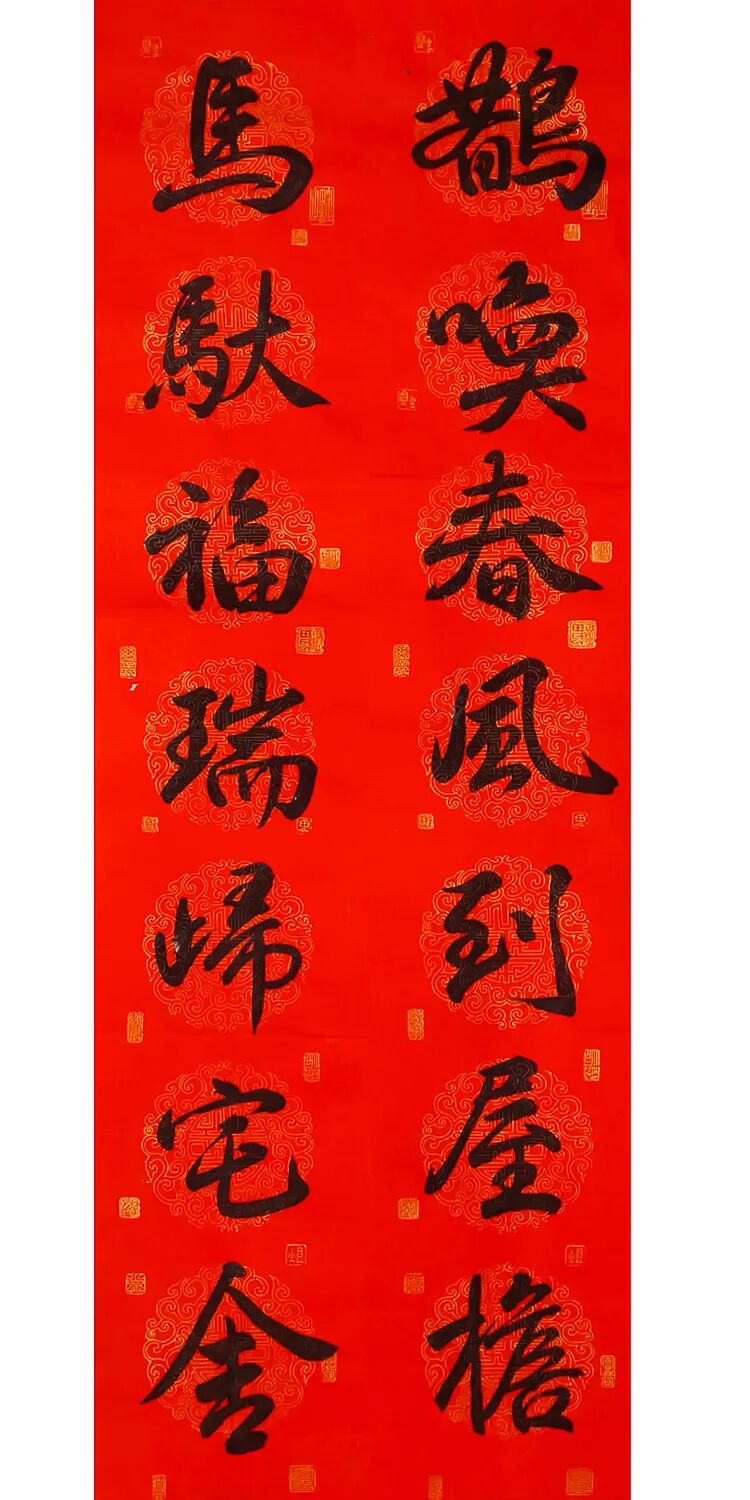 鵲喚春風到屋檐
馬馱福瑞歸宅舍